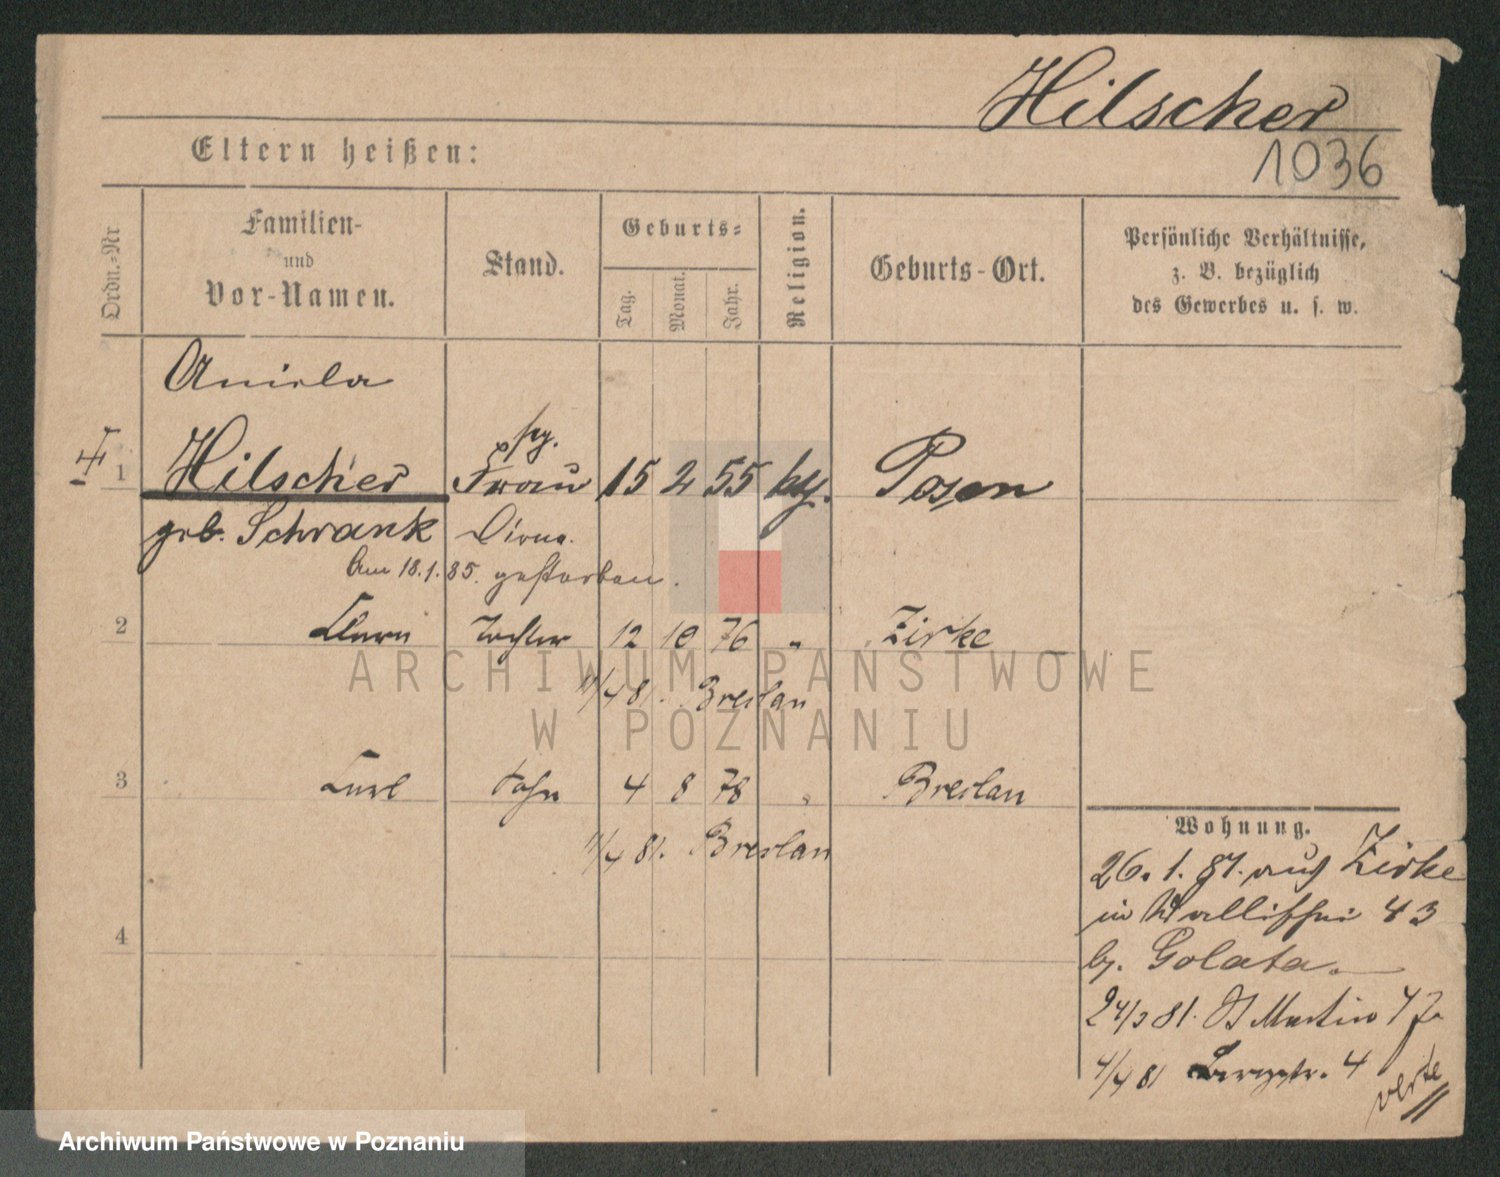 Hilscher
1036
Eltern heißen:
Ordn.=Nr
Familien-
und
Vor-Namen.
Stand.
Geburts=
Tag.
Monat.
Jahr.
Religion.
Geburts-Ort.
Persönliche Verhältnisse,
z. B. bezüglich
des Gewerbes u. s. w.
Aniela
1 Hilscher Frau 15 2 55 Posen
geb. Schrank
Am 18.1.85. gestorben.
2 Tochter 12 10 76 " Zirke
11/4 81. Breslau
3 Carl Sohn 4 8 78 " Breslau
11/4 81. Breslau
4
Wohnung.
26. 1. 81. aus Zirke
in Wallischei 43
by. Golata.
24/3 81. St Martin
4/4 81 Bergstr. 4
verte
ARCHIWUM PAŃSTWOWE
W POZNANIU
Archiwum Państwowe w Poznaniu